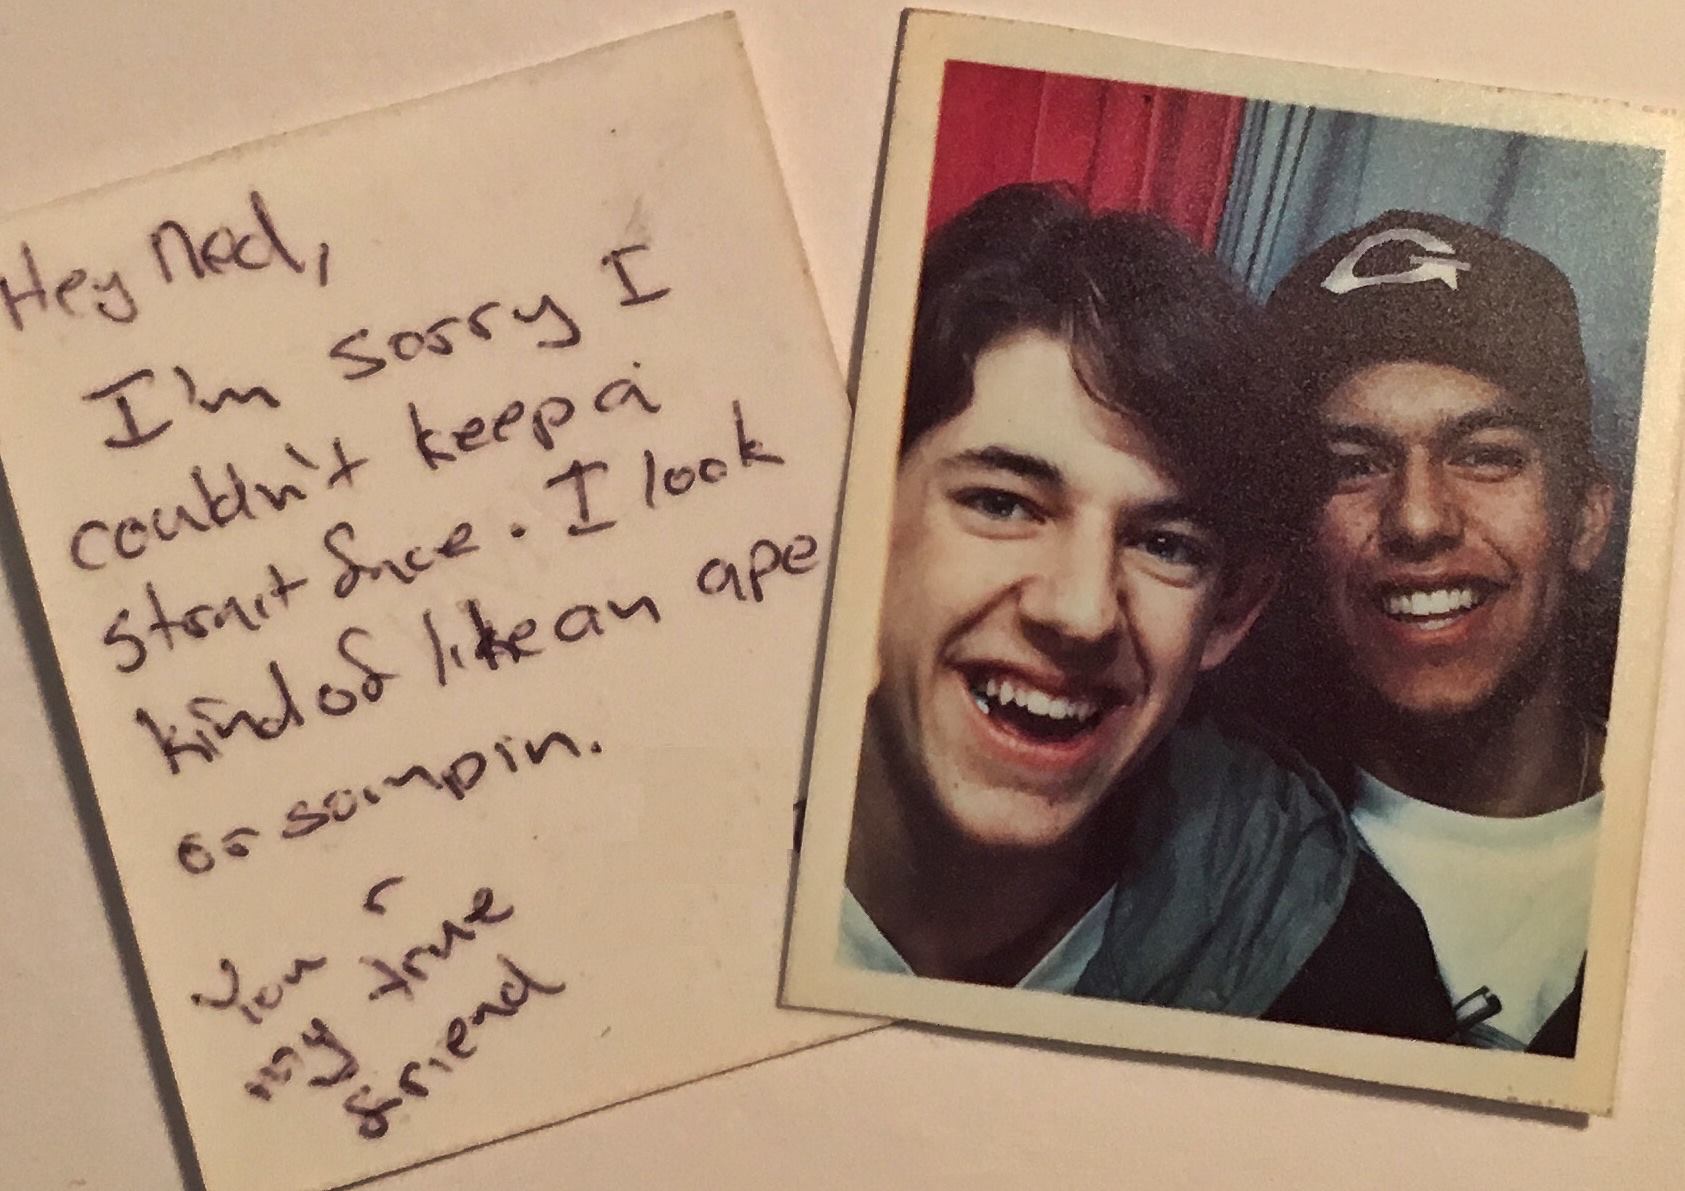 Hey Ned,
I'm sorry I
couldn't keep a
strait face. I look
kind of like an ape
or sompin.
You r
my true
friend
G